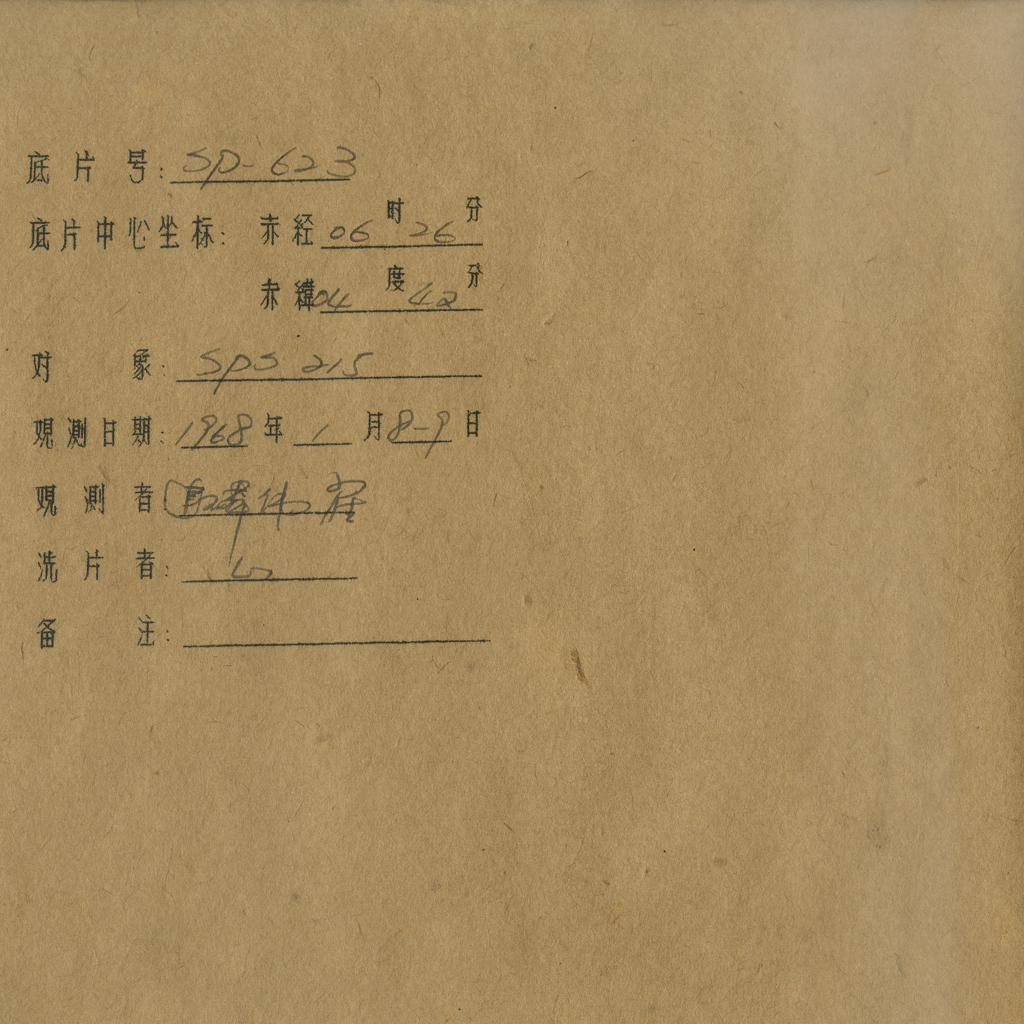 底片号: SP-623
底片中心坐标: 赤经 06 时 26 分
赤纬 04 度 42 分
对象: SPS 215
观测日期: 1968 年 1 月 8-9 日
观测者
洗片者:
备注: